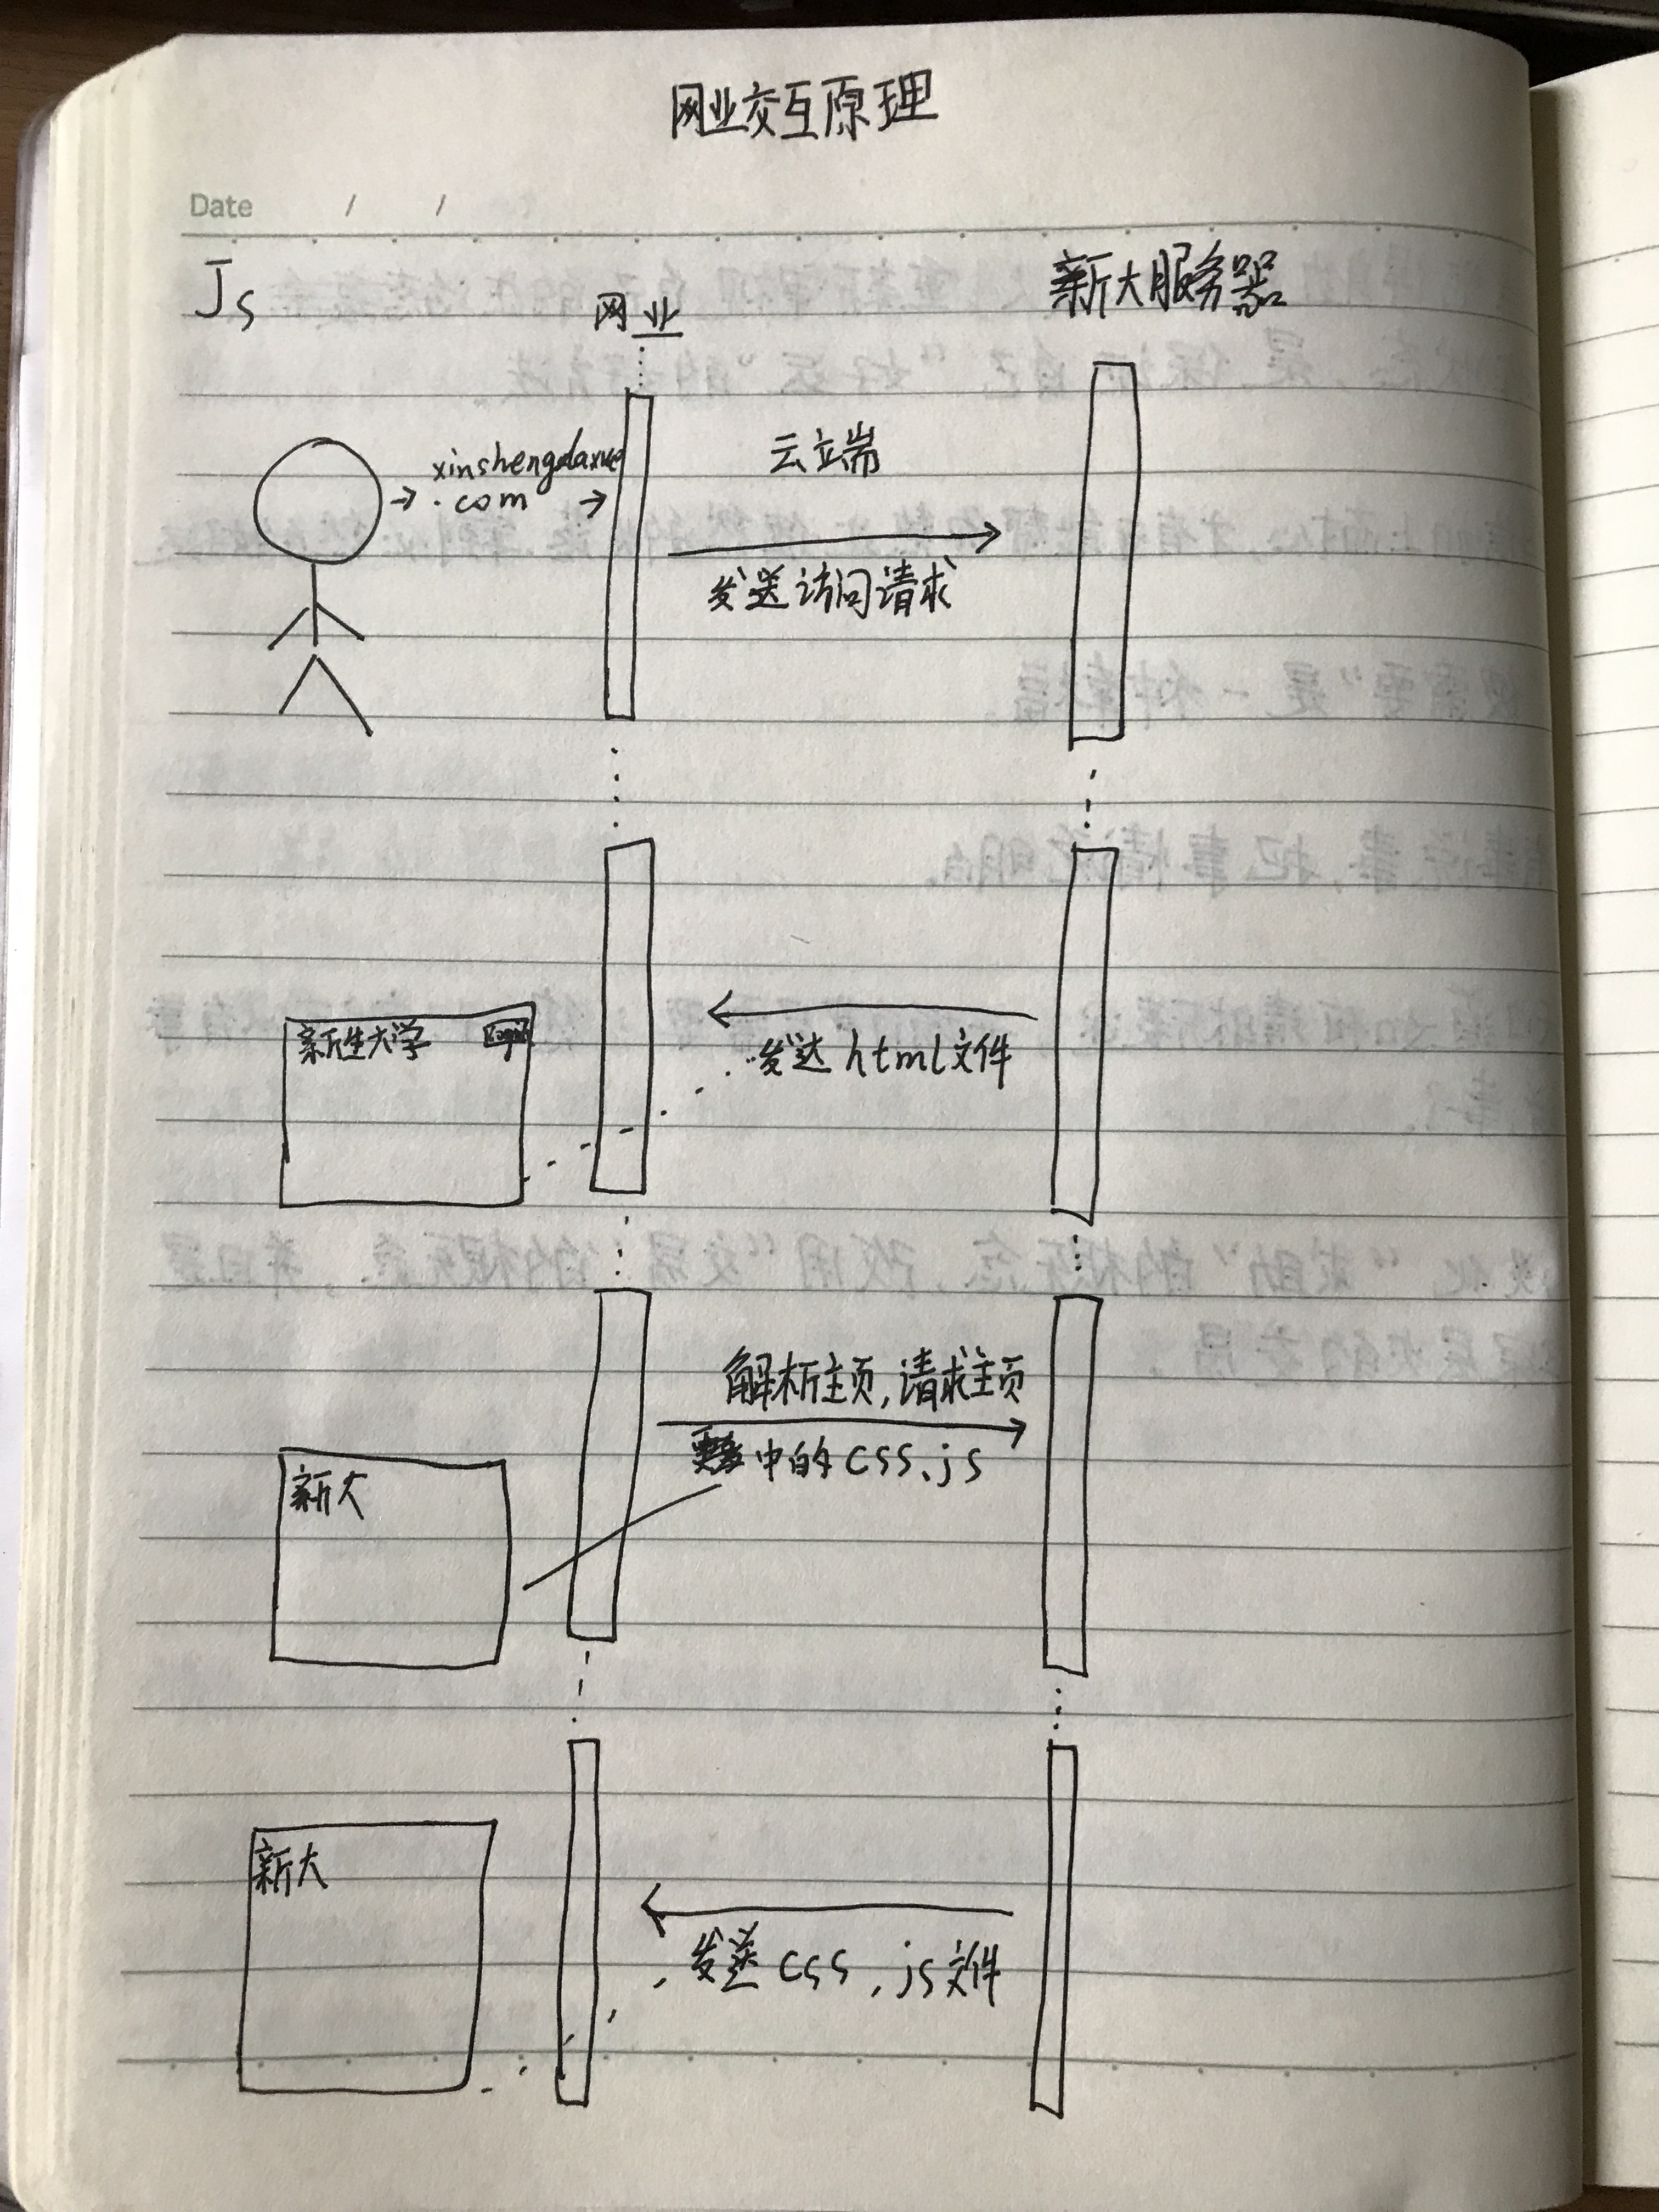 网业交互原理
Date / /
Js
网业
新大服务器
xinshengdaxue
.com
云立端
发送访问请求
新生大学 Login
发送html文件
解析主页,请求主页
中的css、js
新大
新大
发送css,js文件